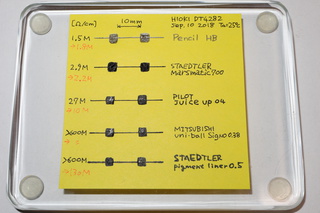 [Ω/cm] 10mm HIOKI DT4282
Sep. 10 2018 Ta=25℃
1.5M Pencil HB
→1.8M
2.9M STAEDTLER
Marsmatic 700
→2.2M
27M PILOT
Juice up 04
→10M
>600M MITSUBISHI
uni-ball Signo 0.38
>600M STAEDTLER
pigment liner 0.5